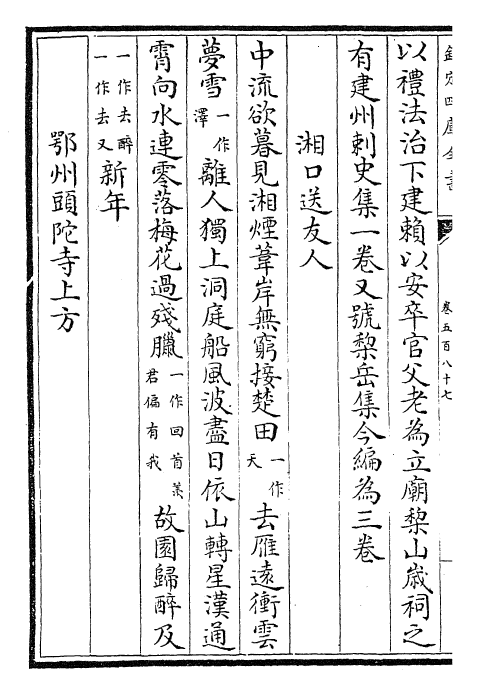 欽定四庫全書
卷五百八十七
以禮法治下建賴以安卒官父老為立廟棃山歲祠之
有建州刺史集一卷又號棃岳集今編為三卷
湘口送友人
中流欲暮見湘煙葦岸無窮接楚田一作天去雁遠衝雲
夢雪一作澤離人獨上洞庭船風波盡日依山轉星漢通
霄向水連零落梅花過殘臘一作回首羨君偏有我故園歸醉及
一作去醉一作去又新年
鄂州頭陀寺上方